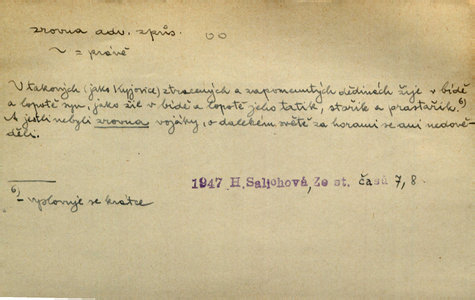 zrovna adv. způs.
~ z právě
V takových (jako Kyjovice) ztracených a zapomenutých dědinách žije v bídě
a lopotě syn, jako žil v bídě a lopotě jeho tatík, stařík a prastařík.6)
A jestli nebyli zrovna vojáky, o dalekém světě za horami se ani nedově-
děli.
1947 H. Salichová, Ze st. časů 7, 8
6) vyslovuje se krátce